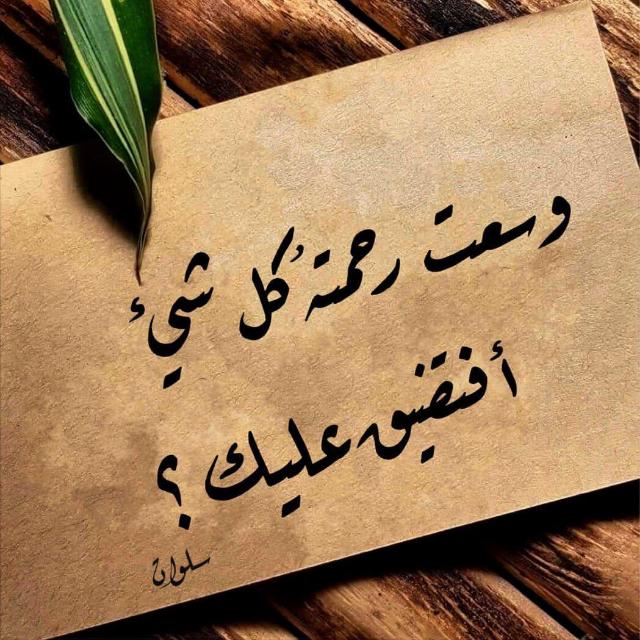 وسعت رحمته كُل شيءٍ
أفتضيق عليك ؟
سلوان